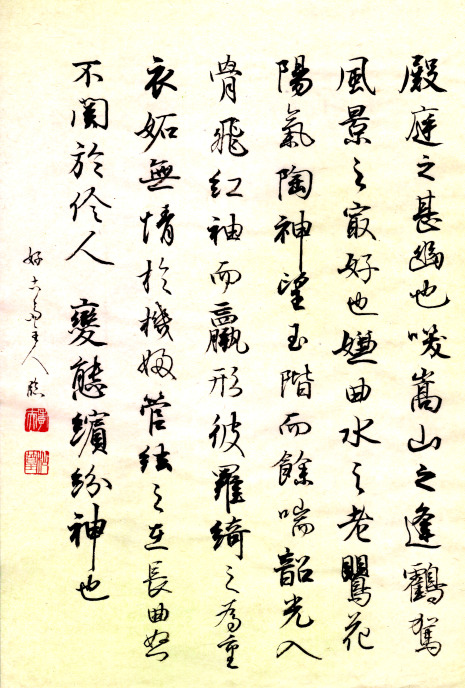 殿庭之甚幽也嗟嵩山之逢鶴駕
風景之冣好也嫌曲水之老鸎花
陽氣陶神望玉階而餘喘韶光入
骨飛紅袖而羸形彼羅綺之為重
衣妬無情於機婦管絃之在長曲怒
不闋於伶人 變態繽紛神也
好古主人 臨